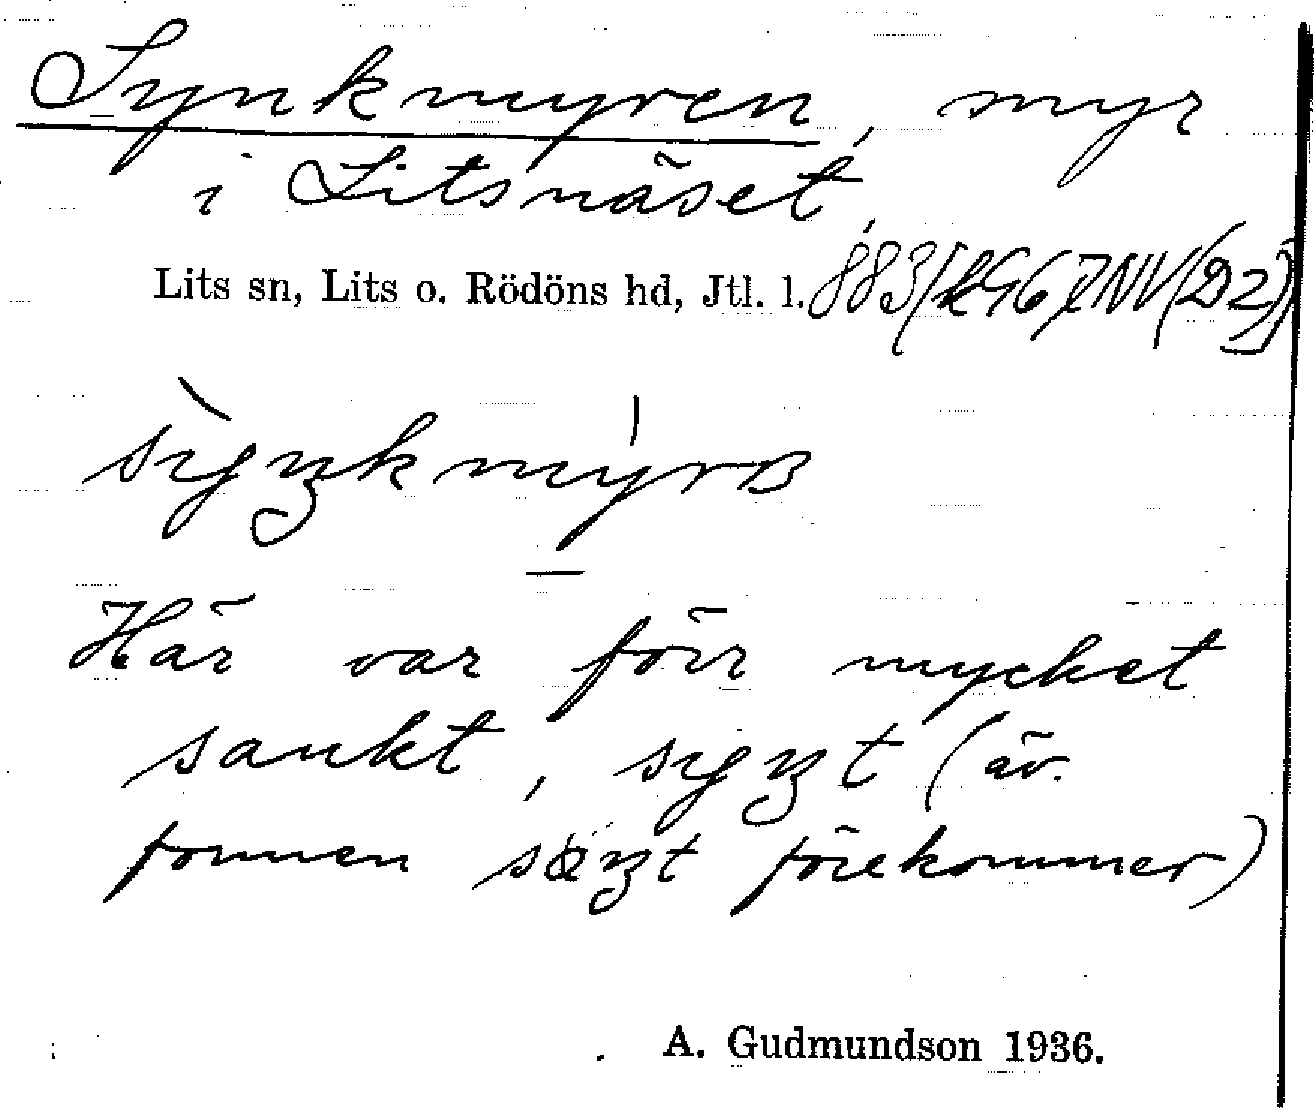 Synkmyren, myr
i Litsnäset
Lits sn, Lits o. Rödöns hd, Jtl. l.
Här var förr mycket
sankt, syŋt (äv.
formen förekommer)
A. Gudmundson 1936.